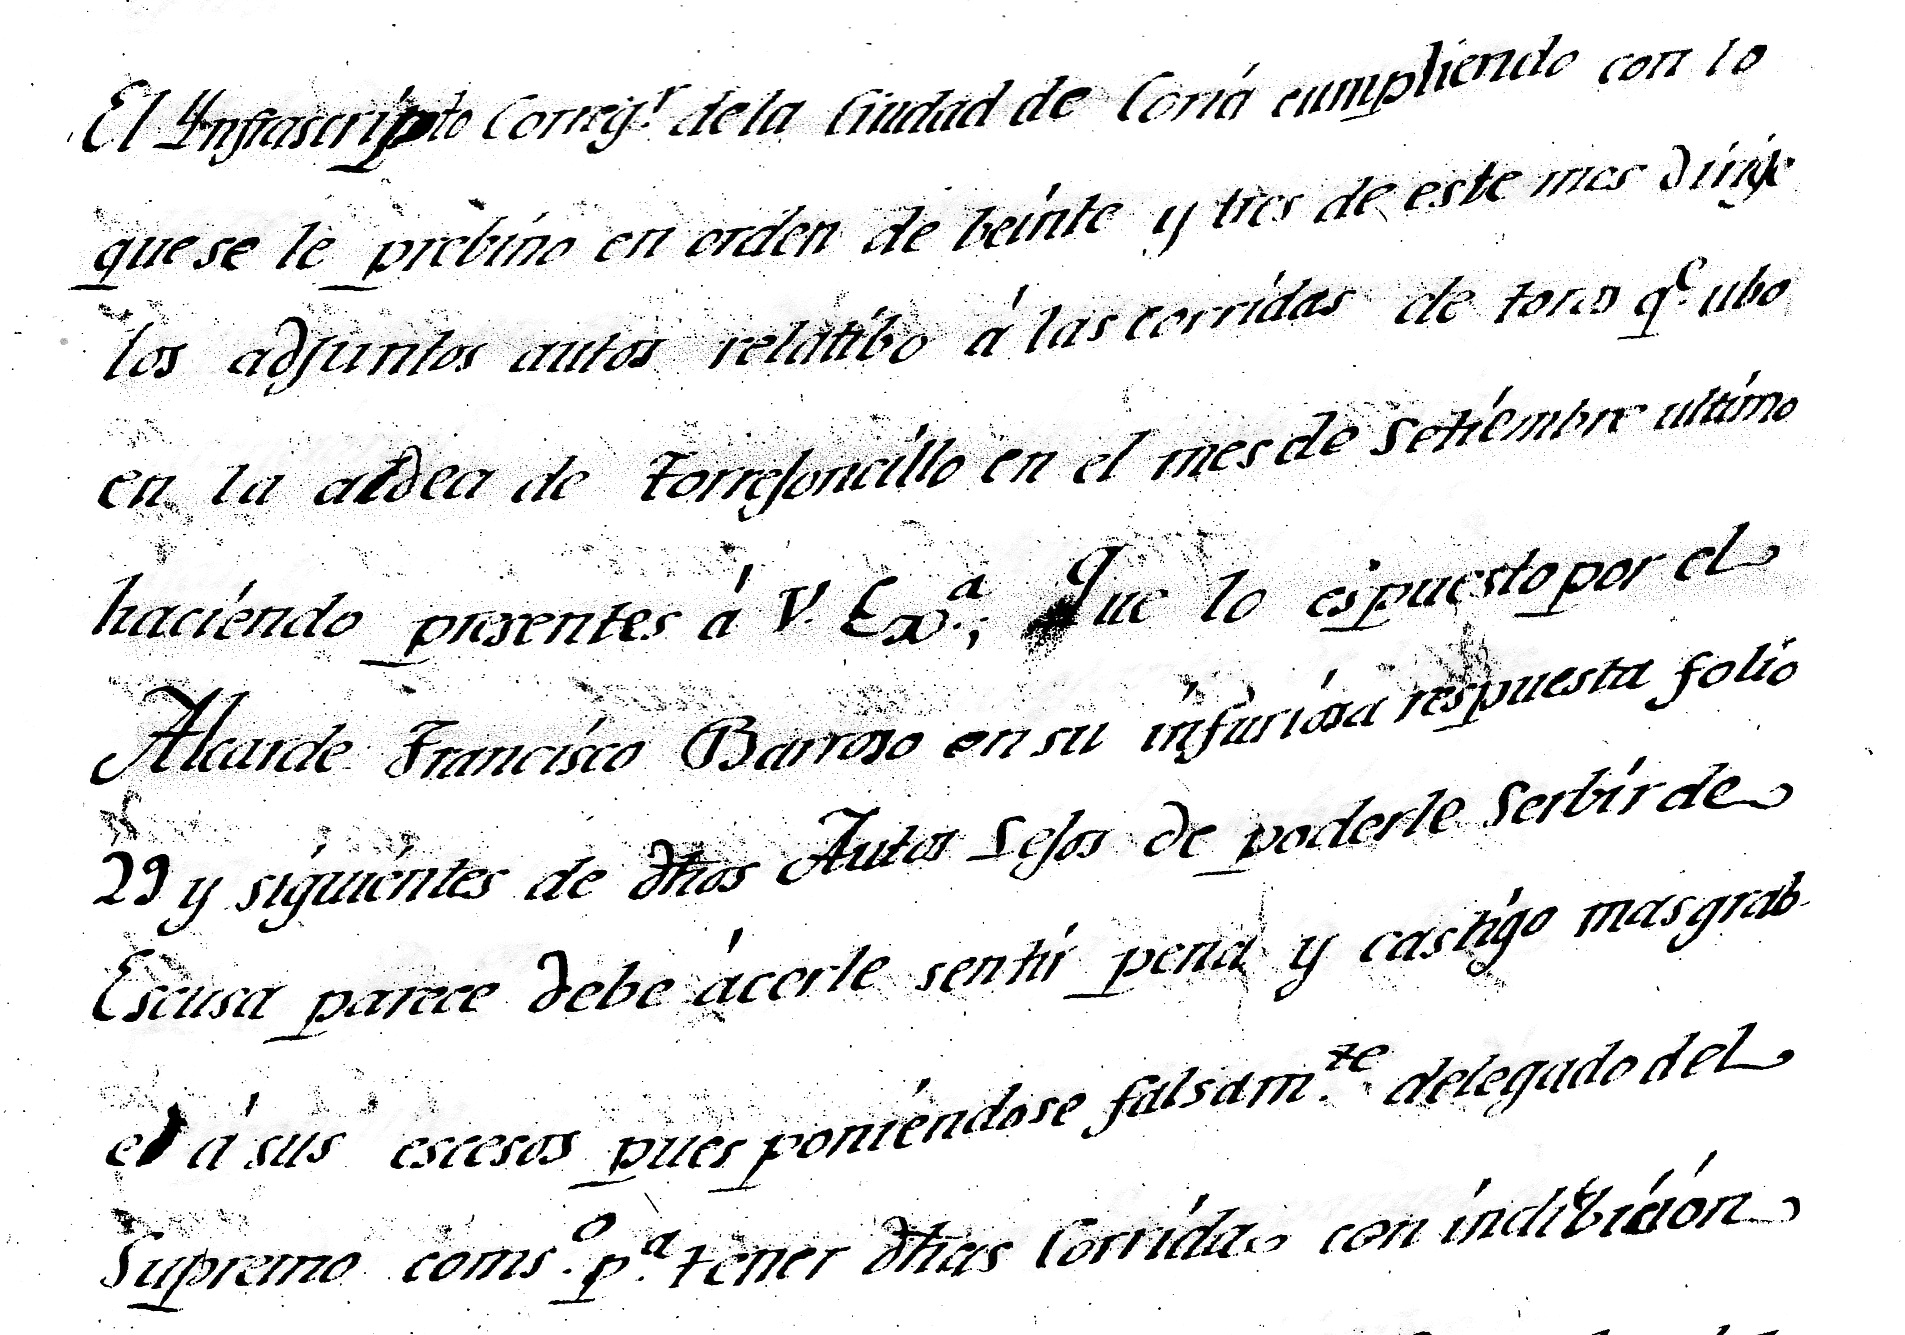 El Ynfrascripto Correg.r de la Ciudad de Coria cumpliendo con lo
que se le prebino en orden de beinte y tres de este mes dirije
los adjuntos autos relatibo á las corridas de toros q.e ubo
en la aldea de Torrejoncillo en el mes de Setiembre ultimo
haciendo presentes á V. Exa.; Que lo espuesto por el
Alcarde Francisco Barroso en su injuriosa respuesta folio
29 y siguientes de dhos Autos Lejos de poderle Serbir de
Escusa parece debe ácerle sentir pena y castigo mas grab
el á sus escesos pues poniendose falsam.te delegado del
Supremo coms.o p.a tener dhas Corridas con indibición